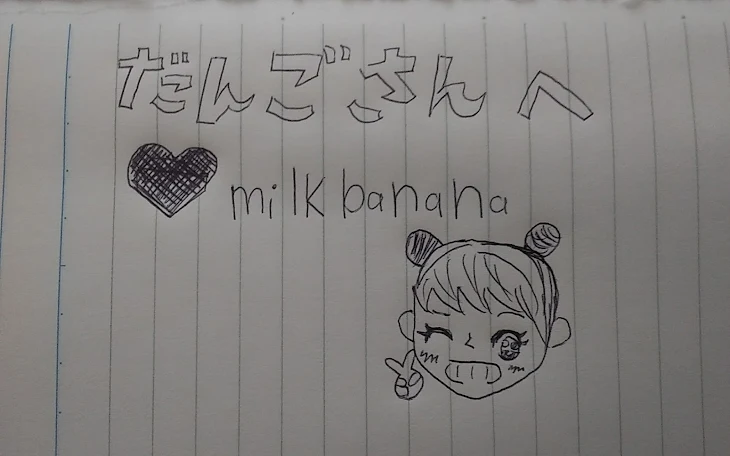 だんごさんへ
milk banana